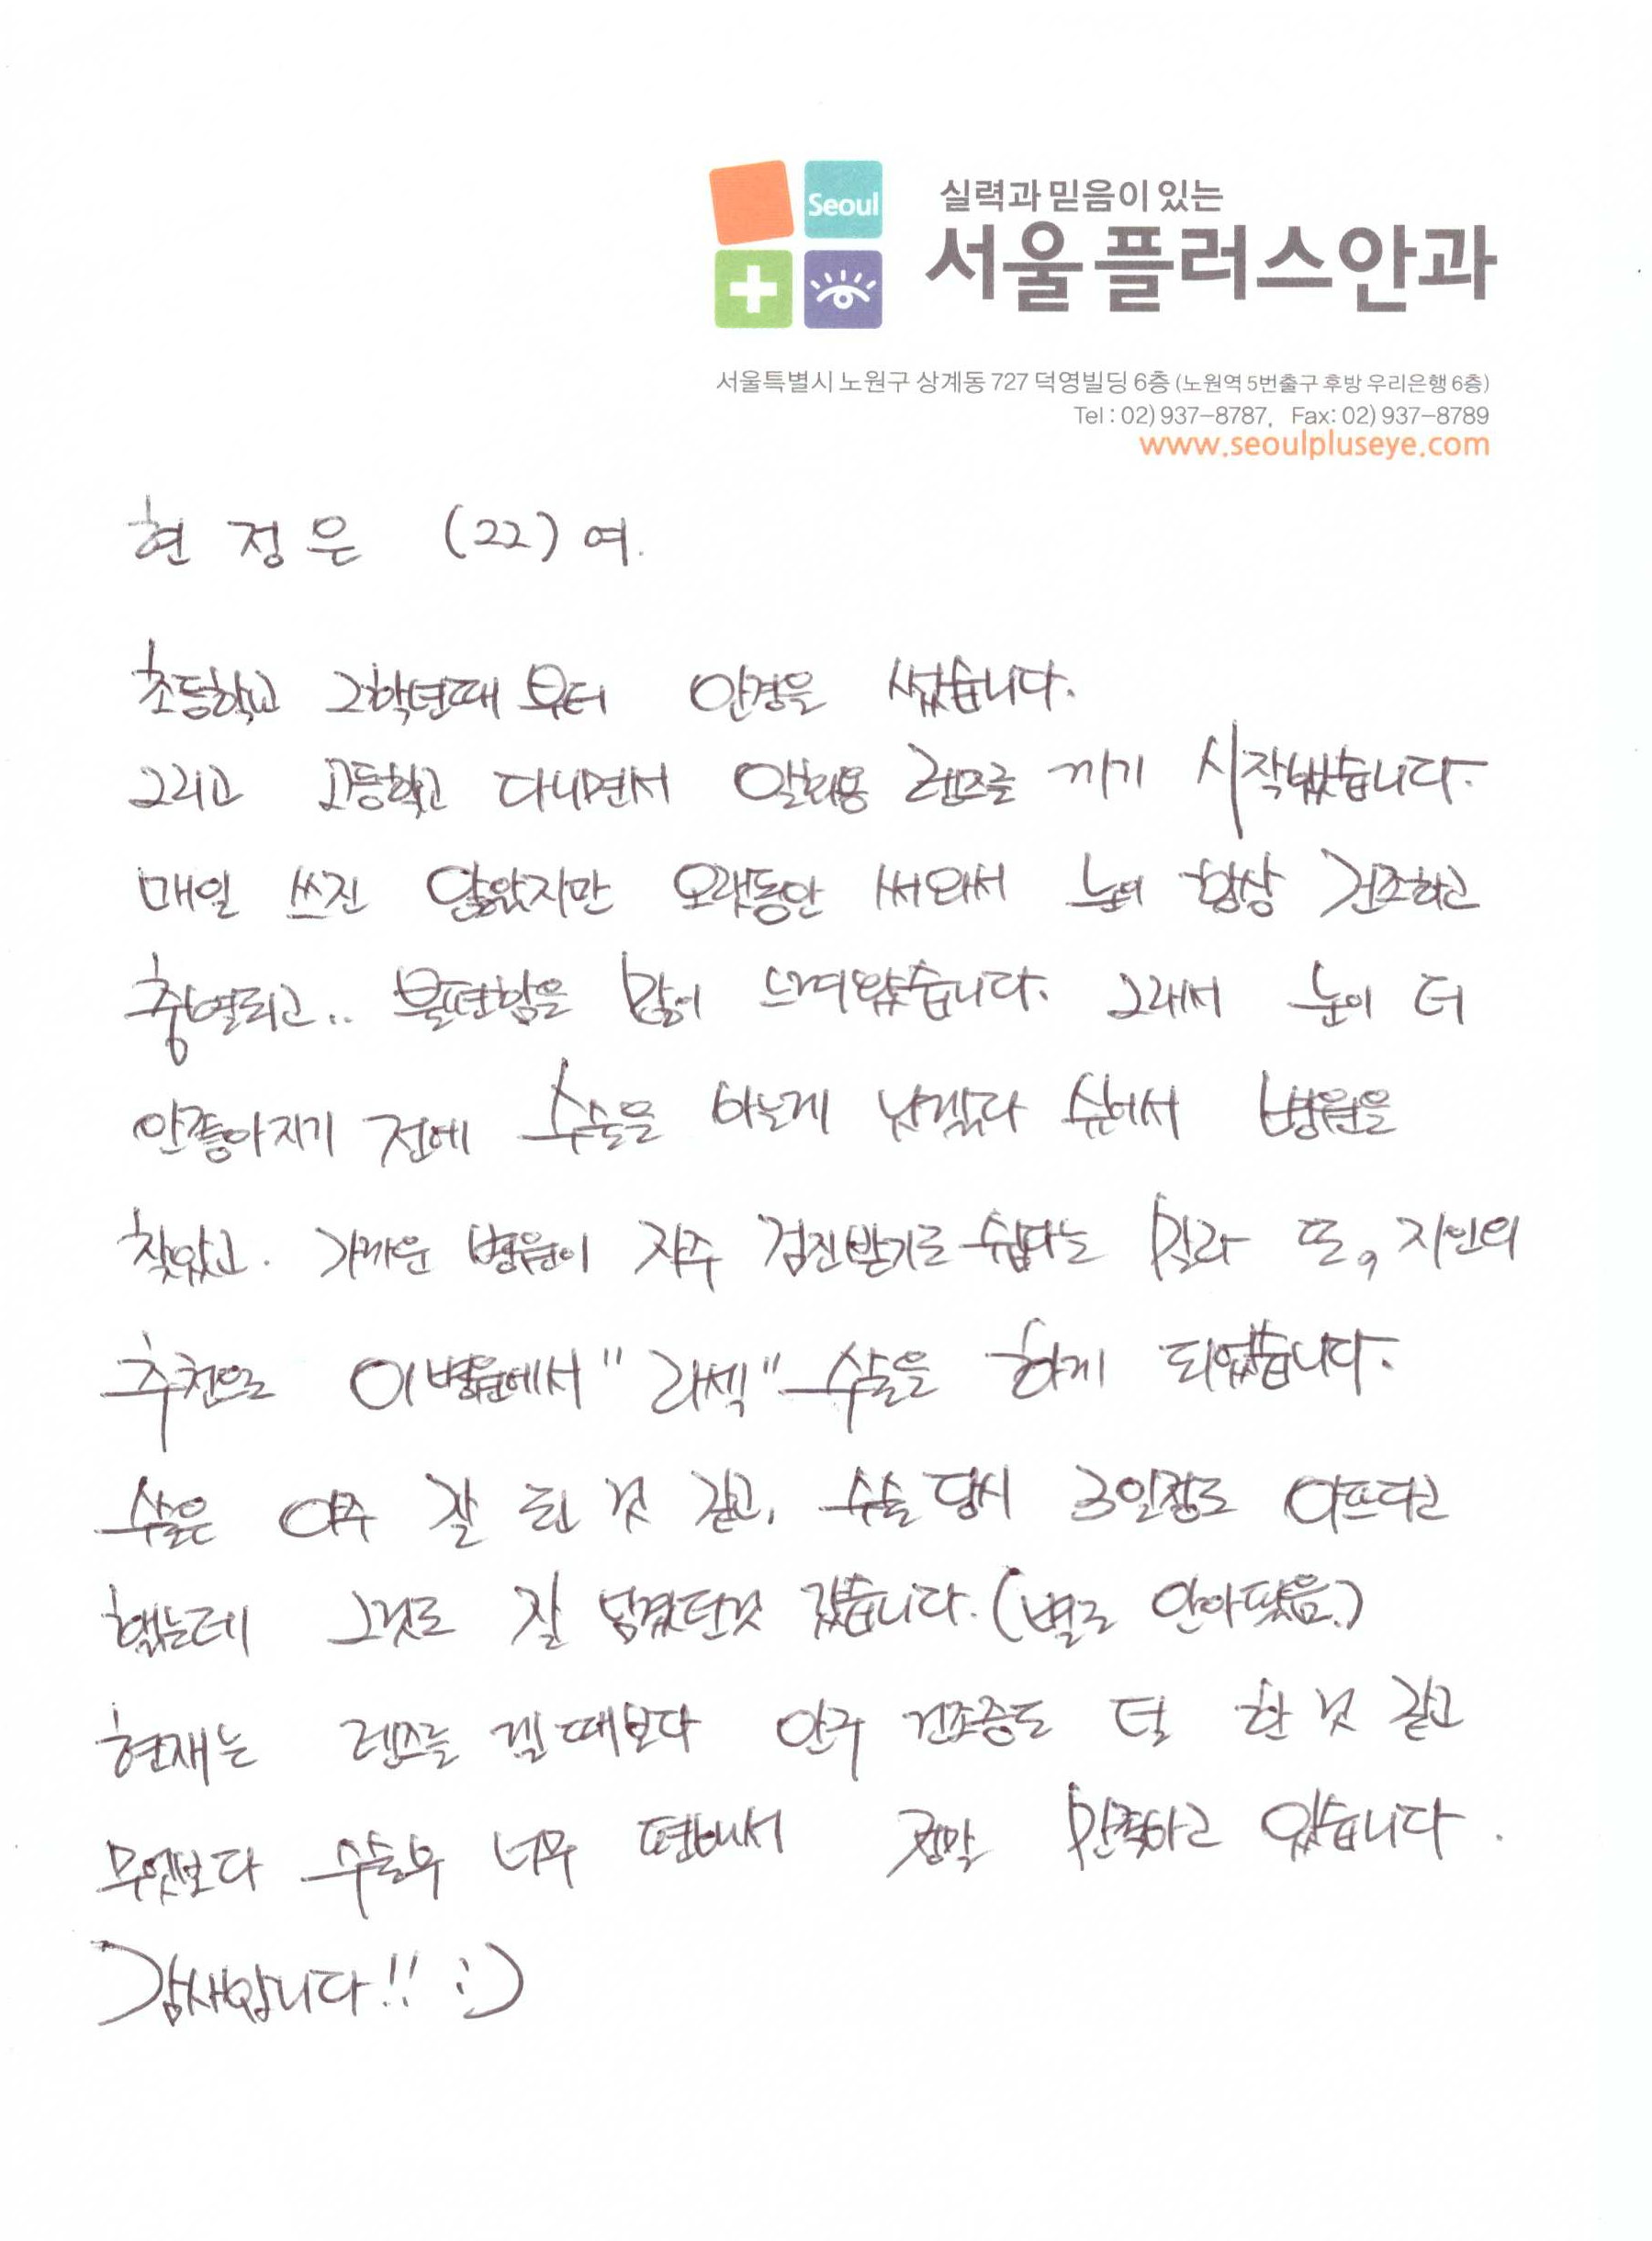 Seoul
실력과 믿음이 있는
서울플러스안과
서울특별시 노원구 상계동 727 덕영빌딩 6층 (노원역 5번출구 후방 우리은행 6층)
Tel : 02) 937-8787, Fax: 02) 937-8789
www.seoulpluseye.com
현정은 (22) 여.
초등학교 2학년때 부터 안경을 썼습니다.
그리고 고등학교 다니면서 일회용 렌즈를 끼기 시작했습니다.
매일 쓰진 않았지만 오랫동안 써와서 눈이 항상 건조하고
충혈되고.. 불편함을 많이 느껴왔습니다. 그래서 눈이 더
안좋아지기 전에 수술을 하는게 낫겠다 싶어서 병원을
찾았고. 가까운 병원이 자주 검진받기도 쉽다는 말과 또, 지인의
추천으로 이병원에서 "라섹" 수술을 하게 되었습니다.
수술은 아주 잘 된 것 같고, 수술 당시 3일정도 아프다고
했는데 그것도 잘 넘겼던것 같습니다. (별로 안아팠음.)
현재는 렌즈를 낄 때보다 안구 건조증도 덜 한 것 같고
무엇보다 수술후 너무 편해서 정말 만족하고 있습니다.
감사합니다!! :)